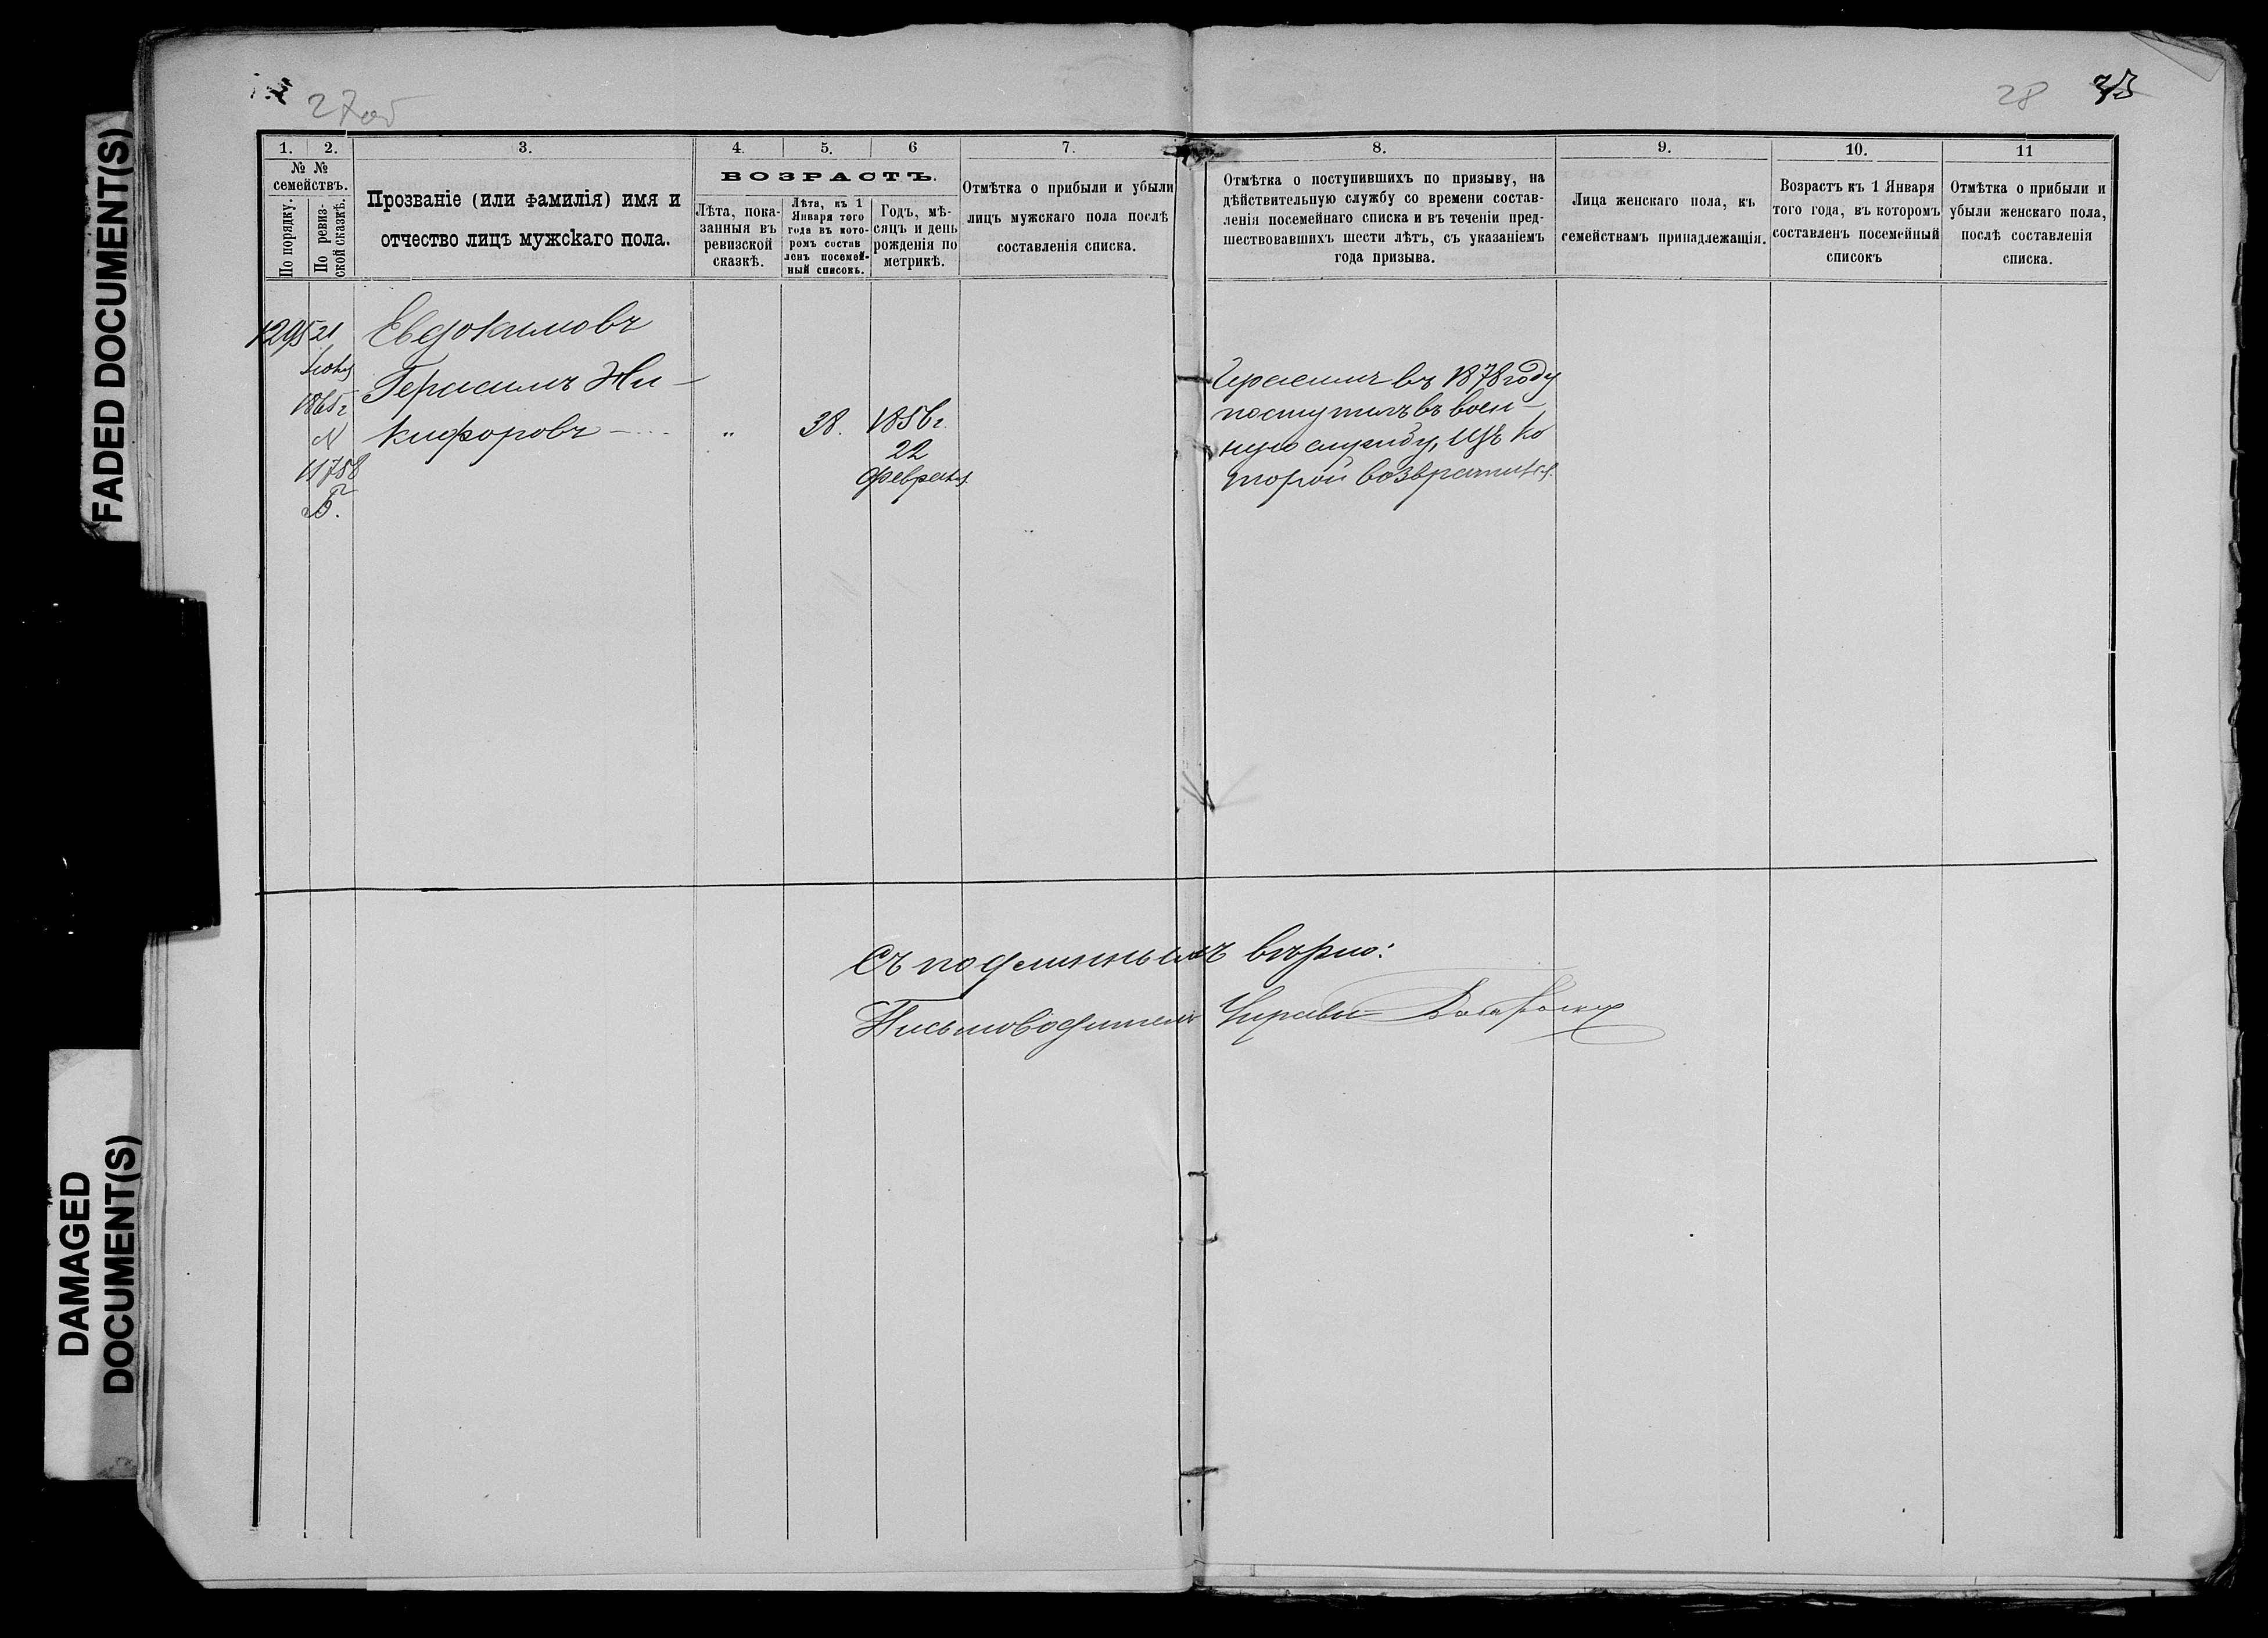 FADED DOCUMENT(S)
DAMAGED
DOCUMENT(S)
27об
28
1.
2.
3.
4.
5.
6
7.
8.
9.
10.
11
№ №
семействъ.
По порядку.
По ревиз-
ской сказкѣ.
Прозваніе (или фамилія) имя и
отчество лицъ мужскаго пола.
ВОЗРАСТЪ.
Лѣта, пока-
занныя въ
ревизской
сказкѣ.
Лѣта, къ 1
Января того
года въ кото-
ромъ состав
ленъ посемей-
ный списокъ.
Годъ, мѣ-
сяцъ и день
рожденія по
метрикѣ.
Отмѣтка о прибыли и убыли
лицъ мужскаго пола послѣ
составленія списка.
Отмѣтка о поступившихъ по призыву, на
дѣйствительную службу со времени состав-
ленія посемейнаго списка и въ теченіи пред-
шествовавшихъ шести лѣтъ, съ указаніемъ
года призыва.
Лица женскаго пола, къ
семействамъ принадлежащія.
Возрастъ къ 1 Января
того года, въ которомъ
составленъ посемейный
списокъ
Отмѣтка о прибыли и
убыли женскаго пола,
послѣ составленія
списка.
1295
21
Іюля
1865 г
N
11758
Б.
Евдокимовъ
Герасимъ Ни-
кифоровъ
"
38.
1856 г
22
Февраля.
Герасимъ въ 1878 году
поступилъ въ воен-
ную службу, изъ ко
торой возвратился.
Съ подлиннымъ вѣрно:
Письмоводитель Управы